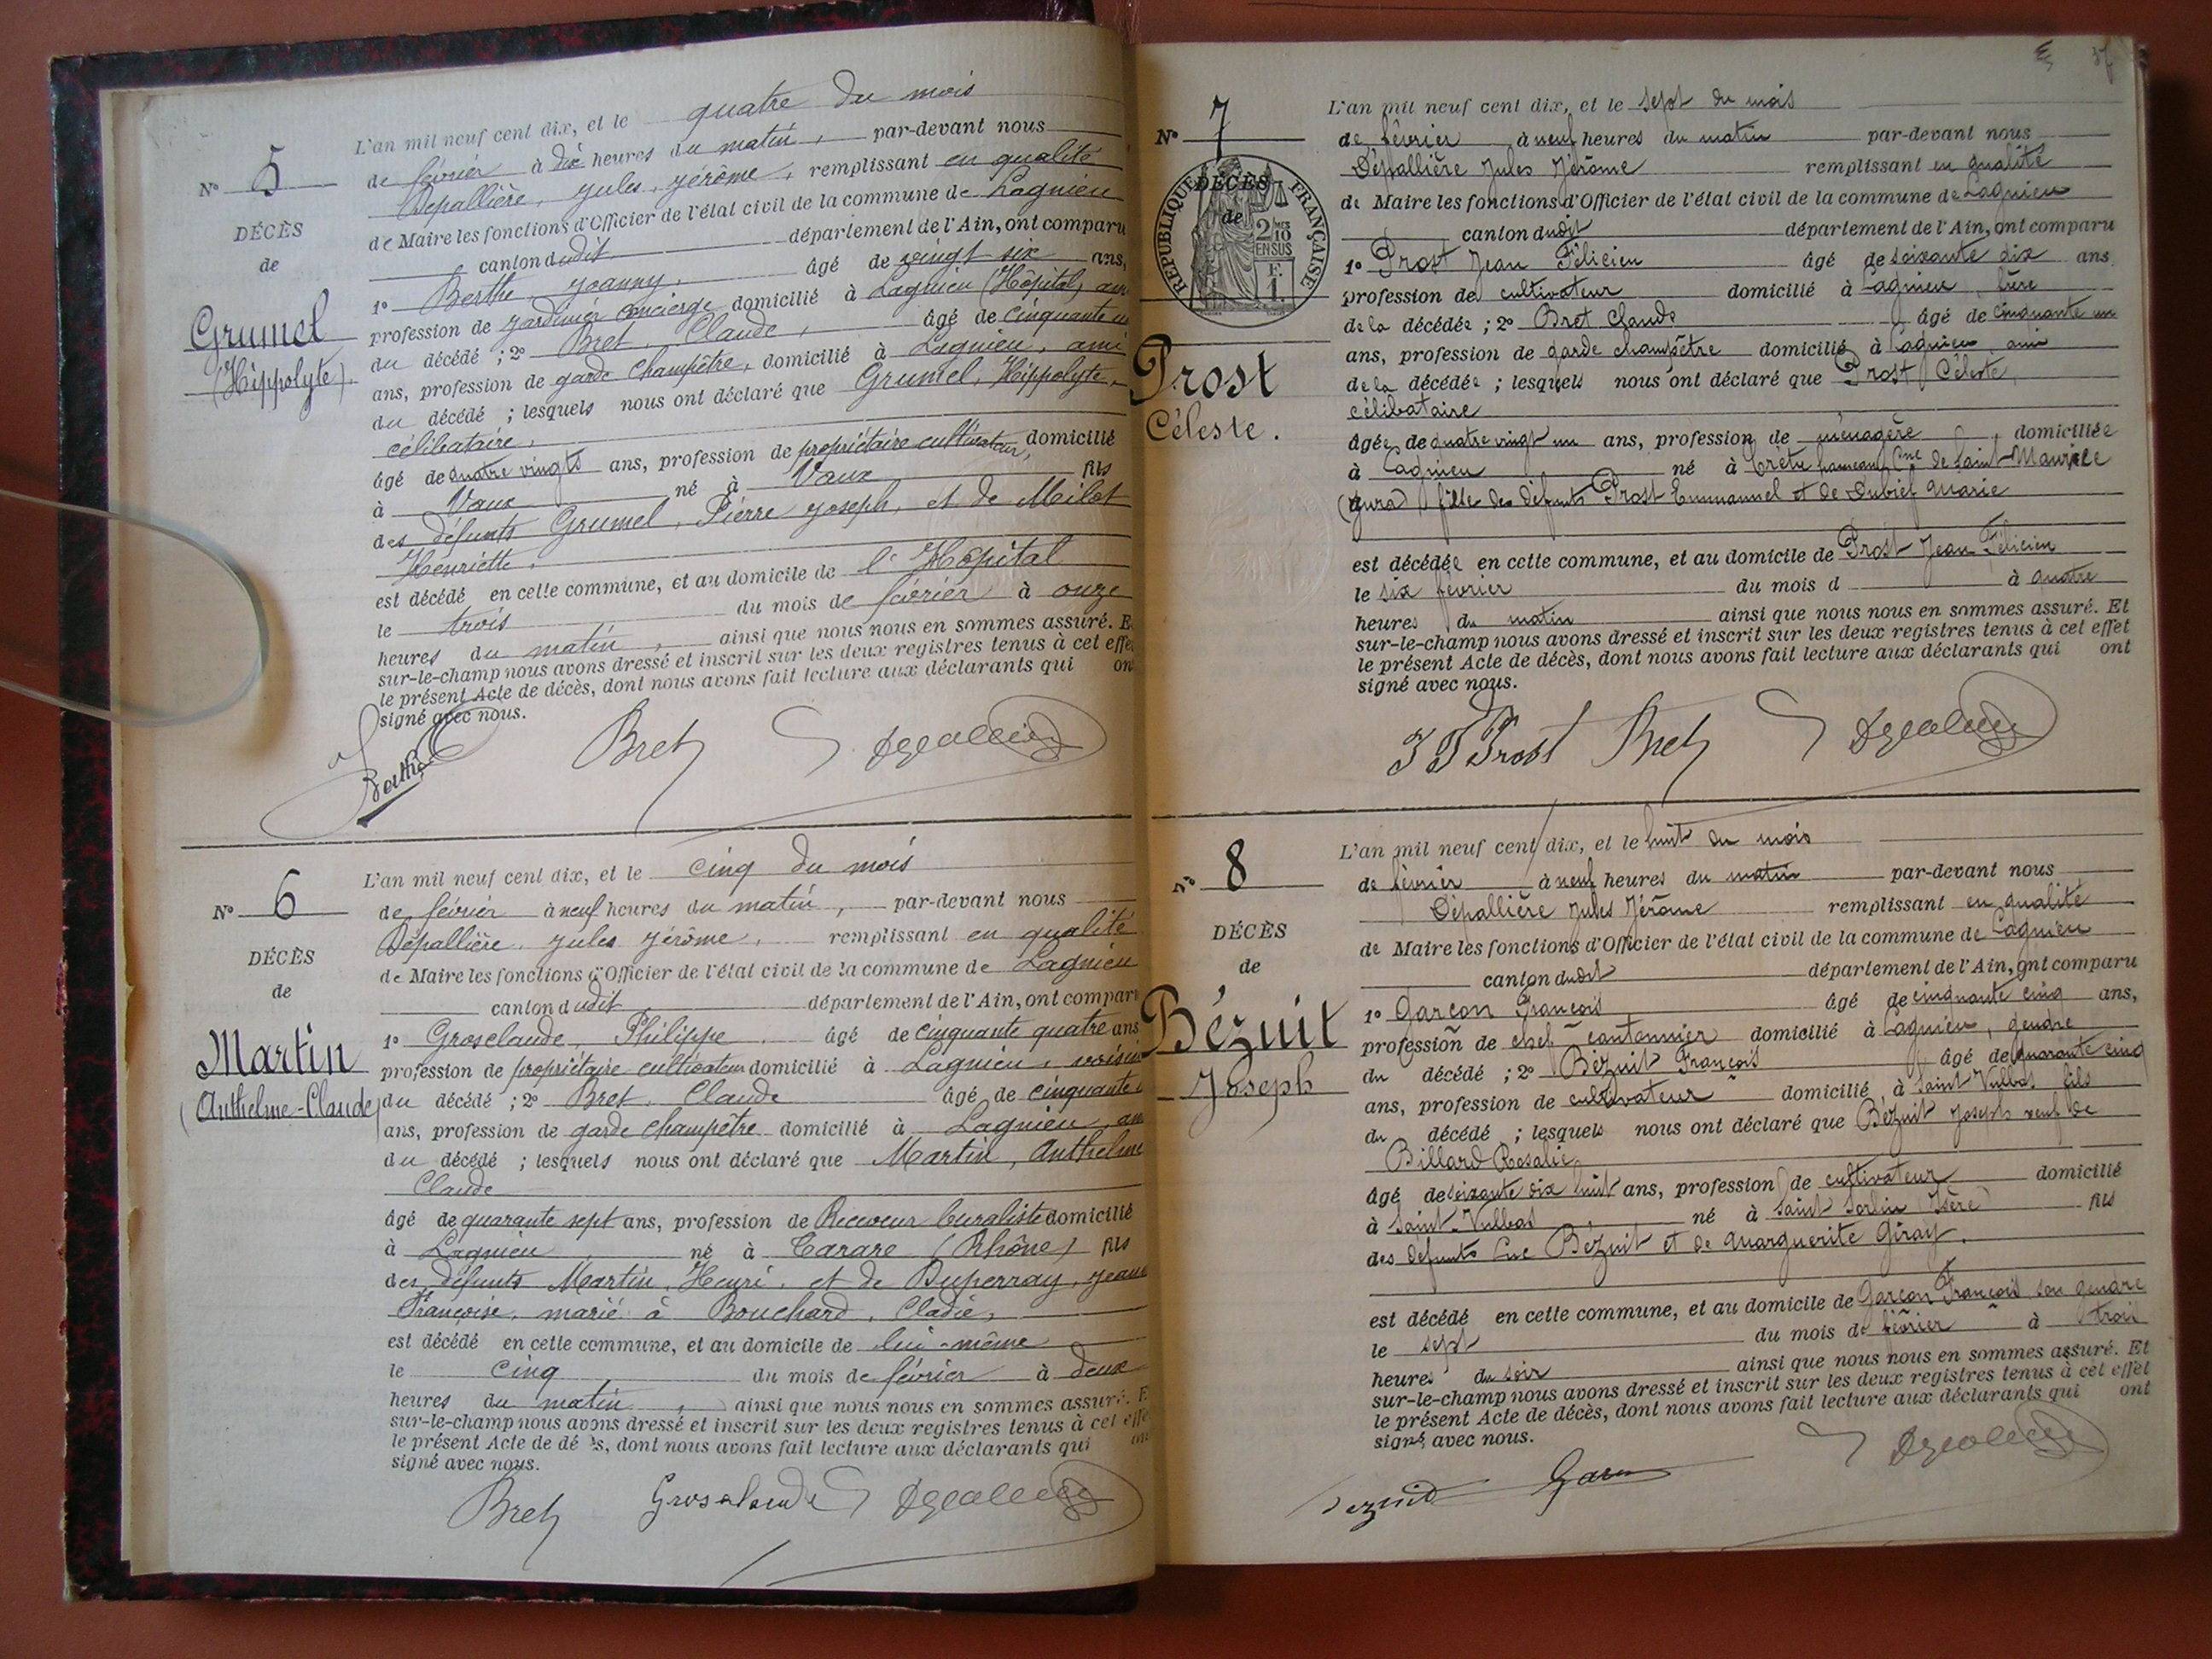 N° 5
DÉCÈS
de
Grumel
(Hippolyte).
L'an mil neuf cent dix, et le quatre du mois
de février à dix heures du matin, par-devant nous
Dépallière, Jules, Jérôme, remplissant en qualité
de Maire les fonctions d'Officier de l'état civil de la commune de Lagnieu
canton dudit département de l'Ain, ont comparu
1° Berthe, Joanny, âgé de vingt six ans,
profession de jardinier concierge domicilié à Lagnieu (Hôpital) ami
du décédé ; 2° Bret, Claude, âgé de cinquante un
ans, profession de garde champêtre, domicilié à Lagnieu, ami
du décédé ; lesquels nous ont déclaré que Grumel, Hippolyte,
célibataire,
âgé de quatre vingts ans, profession de propriétaire cultivateur, domicilié
à Vaux né à Vaux fils
des défunts Grumel, Pierre Joseph, et de Milot
Henriette,
est décédé en cette commune, et au domicile de l'Hôpital
le trois du mois de février à onze
heures du matin, ainsi que nous nous en sommes assuré. E
sur-le-champ nous avons dressé et inscrit sur les deux registres tenus à cet effe
le présent Acte de décès, dont nous avons fait lecture aux déclarants qui on
signé avec nous.
Berthe Bret
N° 6
DÉCÈS
de
Martin
(Anthelme-Claude)
L'an mil neuf cent dix, et le cinq du mois
de février à neuf heures du matin, par-devant nous
Dépallière, Jules Jérôme, remplissant en qualité
de Maire les fonctions d'Officier de l'état civil de la commune de Lagnieu
canton dudit département de l'Ain, ont compar
1° Grosclaude, Philippe âgé de cinquante quatre ans
profession de propriétaire cultivateur domicilié à Lagnieu, voisin
du décédé ; 2° Bret, Claude âgé de cinquante
ans, profession de garde champêtre domicilié à Lagnieu, am
du décédé ; lesquels nous ont déclaré que Martin, Anthelme
Claude
âgé de quarante sept ans, profession de Receveur buraliste domicilié
à Lagnieu, né à Tarare (Rhône) fils
des défunts Martin, Henri, et de Duperray, Jeane
Françoise, marié à Bouchard, Cladie,
est décédé en cette commune, et au domicile de lui-même
le cinq du mois de février à deux
heures du matin, ainsi que nous nous en sommes assuré. E
sur-le-champ nous avons dressé et inscrit sur les deux registres tenus à cet effe
le présent Acte de décès, dont nous avons fait lecture aux déclarants qui on
signé avec nous.
Bret Grosclaude
37
N° 7
DÉCÈS
de
RÉPUBLIQUE FRANÇAISE
2 10
EN SUS
F.
1.
Prost
Céleste.
L'an mil neuf cent dix, et le sept du mois
de février à neuf heures du matin par-devant nous
Dépallière Jules Jérôme remplissant en qualité
de Maire les fonctions d'Officier de l'état civil de la commune de Lagnieu
canton dudit département de l'Ain, ont comparu
1° Prost Jean Félicien âgé de soixante dix ans
profession de cultivateur domicilié à Lagnieu, frère
de la décédée ; 2° Bret Claude âgé de cinquante un
ans, profession de garde champêtre domicilié à Lagnieu, ami
de la décédée ; lesquels nous ont déclaré que Prost Céleste,
célibataire
âgée de quatre vingt un ans, profession de ménagère, domiciliée
à Lagnieu né à Crétu hameau Cne de Saint-Maurice
(Jura) fille des défunts Prost Emmanuel et de Dubief Marie
est décédée en cette commune, et au domicile de Prost Jean Félicien
le six février du mois d à quatre
heures du matin ainsi que nous nous en sommes assuré. Et
sur-le-champ nous avons dressé et inscrit sur les deux registres tenus à cet effet
le présent Acte de décès, dont nous avons fait lecture aux déclarants qui ont
signé avec nous.
J F Prost Bret
N° 8
DÉCÈS
de
Bézuit
Joseph
L'an mil neuf cent dix, et le huit du mois
de février à neuf heures du matin par-devant nous
Dépallière Jules Jérôme remplissant en qualité
de Maire les fonctions d'Officier de l'état civil de la commune de Lagnieu
canton dudit département de l'Ain, ont comparu
1° Garçon François âgé de cinquante cinq ans,
profession de chef-cantonnier domicilié à Lagnieu, gendre
du décédé ; 2° Bézuit François âgé de quarante cinq
ans, profession de cultivateur domicilié à Saint Vulbas fils
du décédé ; lesquels nous ont déclaré que Bézuit Joseph veuf de
Billard Rosalie,
âgé de soixante dix huit ans, profession de cultivateur domicilié
à Saint-Vulbas né à Saint Sorlin Isère) fils
des défunts Luc Bézuit et de Marguerite Giray.
est décédé en cette commune, et au domicile de Garçon François son gendre
le sept du mois de février à trois
heures du soir ainsi que nous nous en sommes assuré. Et
sur-le-champ nous avons dressé et inscrit sur les deux registres tenus à cet effet
le présent Acte de décès, dont nous avons fait lecture aux déclarants qui ont
signé avec nous.